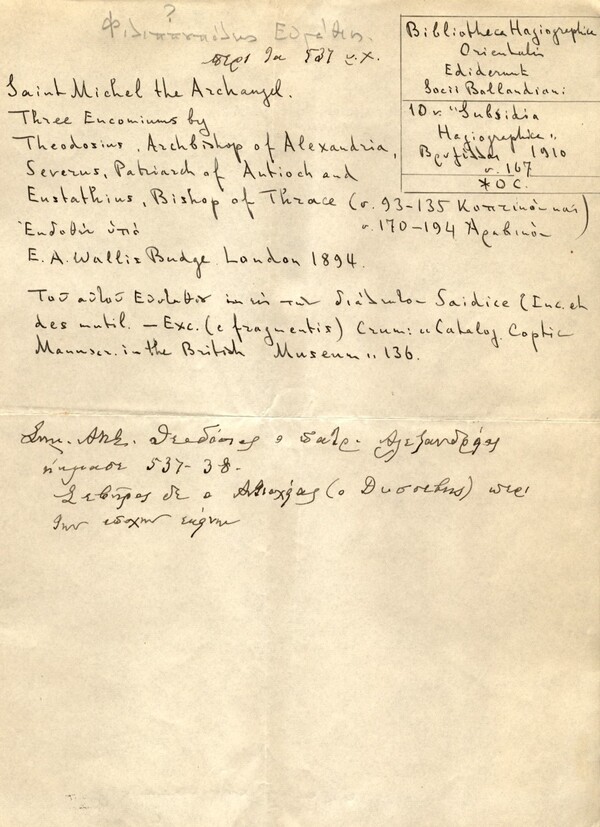 ?
Εὐστάθιος.
περὶ τὰ 537 μ.χ.
Bibliotheca Hagiographica
Orientalis
Ediderunt
Socii Bollandiani
10 v. "Subsidia
Hagiographica"
Βρυξέλλαι 1910
σ. 167
*O C.
Saint Michel the Archangel.
Three Encomiums by
Theodosius, Archbishop of Alexandria,
Severus, Patriarch of Antioch and
Eustathius, Bishop of Thrace (σ. 93-135 Κοπτικὸν καὶ
σ. 170-194 Ἀραβικὸν)
Ἐκδοθὲν ὑπὸ
E. A. Wallis Budge. London 1894.
Τοῦ αὐτοῦ Εὐσταθίου διάλεκτον Saidice (Inc. et
des mutil. — Exc. (e fragmentis) Crum: "Catalog. Coptic
Manuscr. in the British Museum" 136.
Σημ. Θεοδόσιος ὁ πατρ. Ἀλεξανδρείας
ἤκμασε 537-38.
Σεβῆρος δὲ ὁ Ἀντιοχείας (ὁ Δυσσεβὴς) περὶ
τὴν ἐποχὴν ἐκείνην